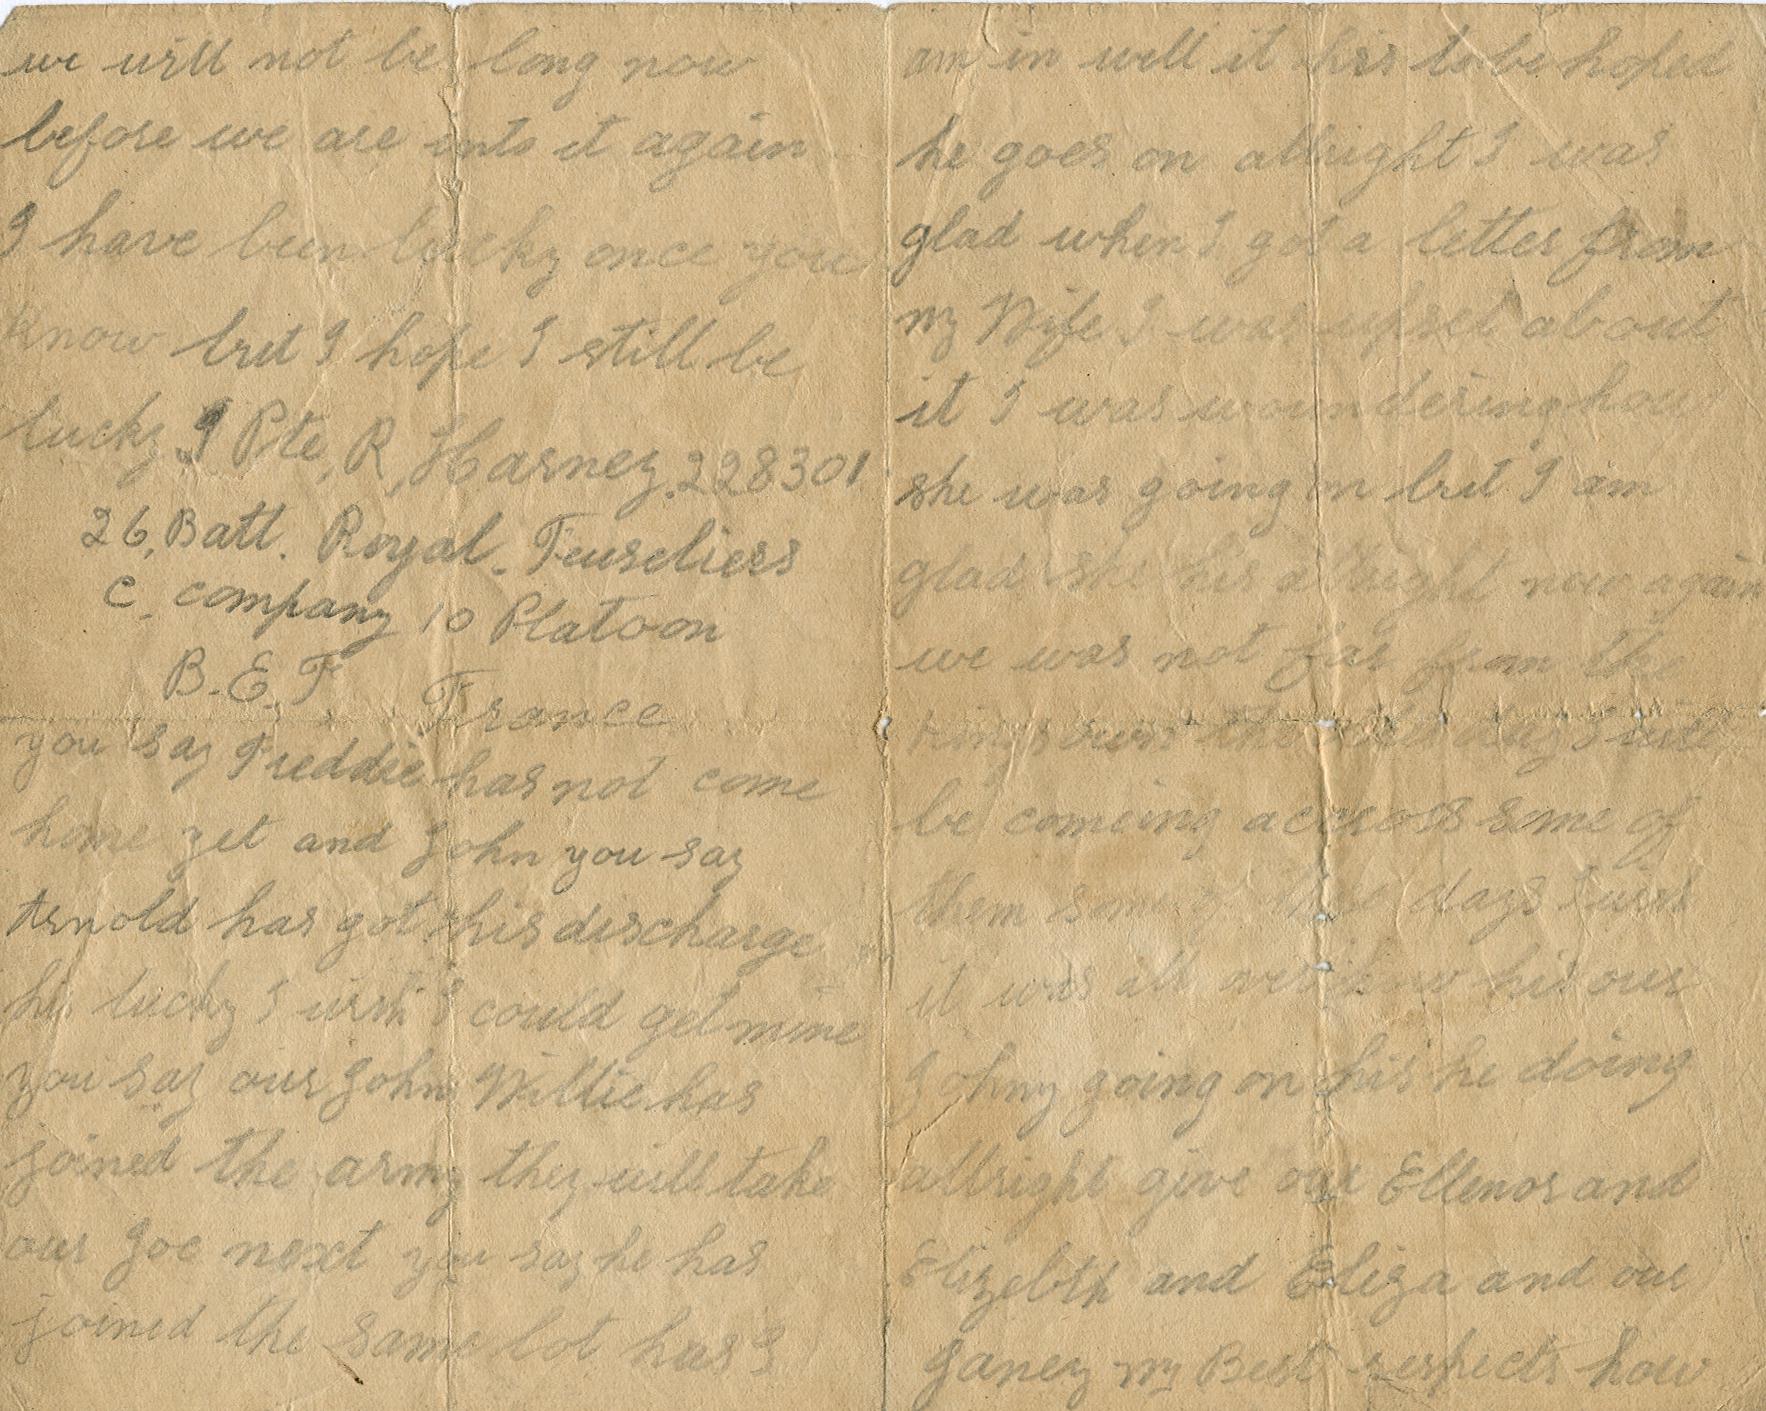 we will not be long now
before we are into it again
I have bun lucky once you
know but I hope I still be
lucky I Pte, R, Harney. 228301
26, Batt. Royal. Feuseliers
C. company 10 Platoon
B.E.F. France
you say Freddie has not come
home yet and John you say
Arnold has got his discharge
his lucky I wish I could get mine
you say our John Willie has
joined the army they will take
our Joe next you say he has
joined the same lot has I
am in well it his to be hoped
he goes on allright I was
glad when I got a letter from
my Wife I was upset about
it I was woundering how
she was going on but I am
glad she his allright now again
we was not far from the
the other day I will
be comeing accross some of
them some of days I wish
it was all over how his our
Johny going on his he doing
allright give our Ellenor and
Elizebth and Eliza and our
Janey my Best respects how